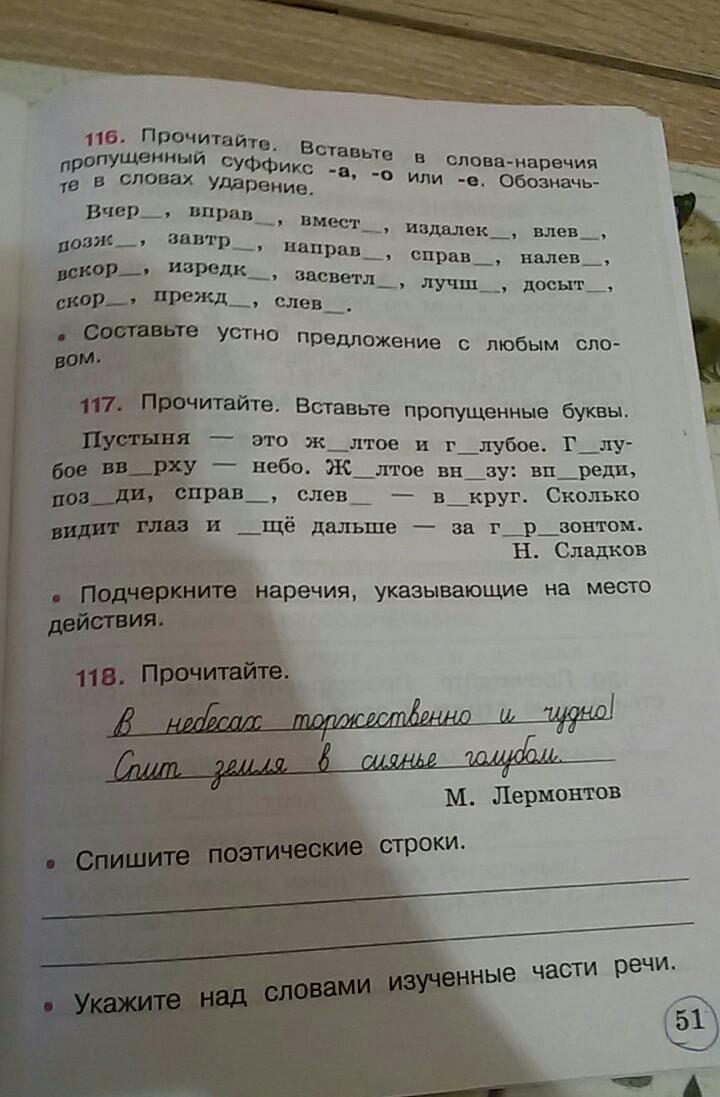 116. Прочитайте. Вставьте в слова-наречия
пропущенный суффикс -а, -о или -е. Обозначь-
те в словах ударение.
Вчер__, вправ__, вмест__, издалек__, влев__,
позж__, завтр__, направ__, справ__, налев__,
вскор__, изредк__, засветл__, лучш__, досыт__,
скор__, прежд__, слев__.
• Составьте устно предложение с любым сло-
вом.
117. Прочитайте. Вставьте пропущенные буквы.
Пустыня — это ж__лтое и г__лубое. Г__лу-
бое вв__рху — небо. Ж__лтое вн__зу: вп__реди,
поз__ди, справ__, слев__ — в__круг. Сколько
видит глаз и __щё дальше — за г__р__зонтом.
Н. Сладков
• Подчеркните наречия, указывающие на место
действия.
118. Прочитайте.
В небесах торжественно и чудно!
Спит земля в сиянье голубом.
М. Лермонтов
• Спишите поэтические строки.
• Укажите над словами изученные части речи.
51